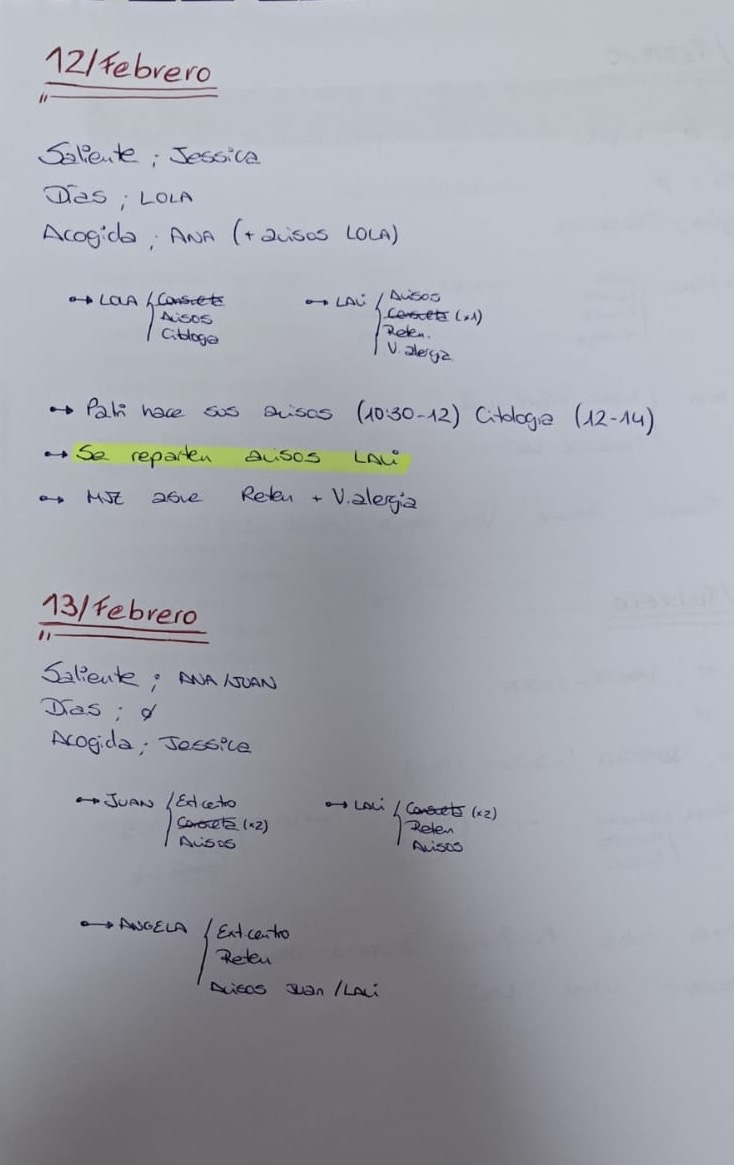 12/Febrero
Saliente ; Jessica
Días ; LOLA
Acogida ; ANA (+ avisos LOLA)
→ LOLA Consulta
Avisos
Citología
→ LALI Avisos
Consulta (x1)
Reten.
V. alergia
→ Pati hace sus avisos (10:30-12) Citología (12-14)
→ Se reparten avisos LALI
→ MJE Reten + V. alergia
13/Febrero
Saliente ; ANA/JUAN
Días ; ∅
Acogida ; Jessica
→ JUAN Ext centro
Consulta (x2)
Avisos
→ LALI Consulta (x2)
Reten
Avisos
→ ANGELA Ext. centro
Reten
Avisos Juan / LALI